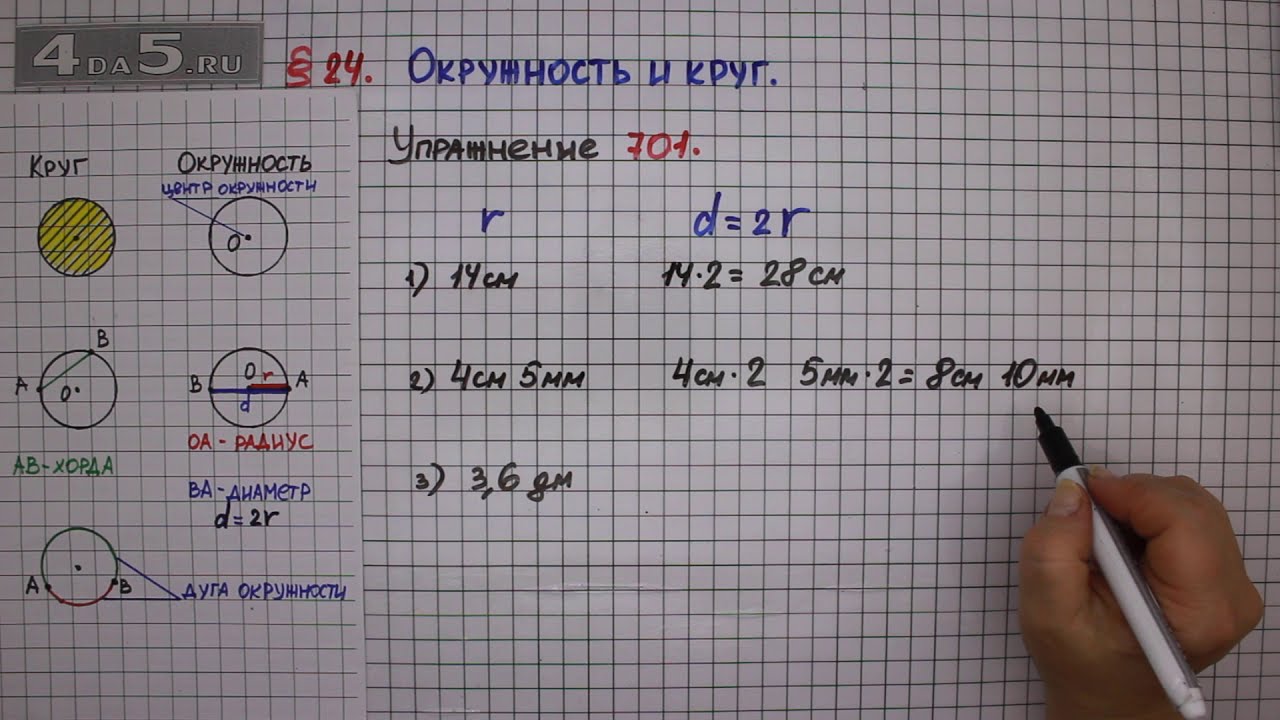 4DA5.RU
§ 24. Окружность и круг.
Упражнение 701.
r d = 2r
1) 14см 14·2 = 28см
2) 4см 5мм 4см·2 5мм·2 = 8см 10мм
3) 3,6 дм
Круг Окружность
центр окружности
О
В
А
О
О r
В А
d
ОА - РАДИУС
АВ - ХОРДА
ВА - ДИАМЕТР
d = 2r
А В
ДУГА ОКРУЖНОСТИ